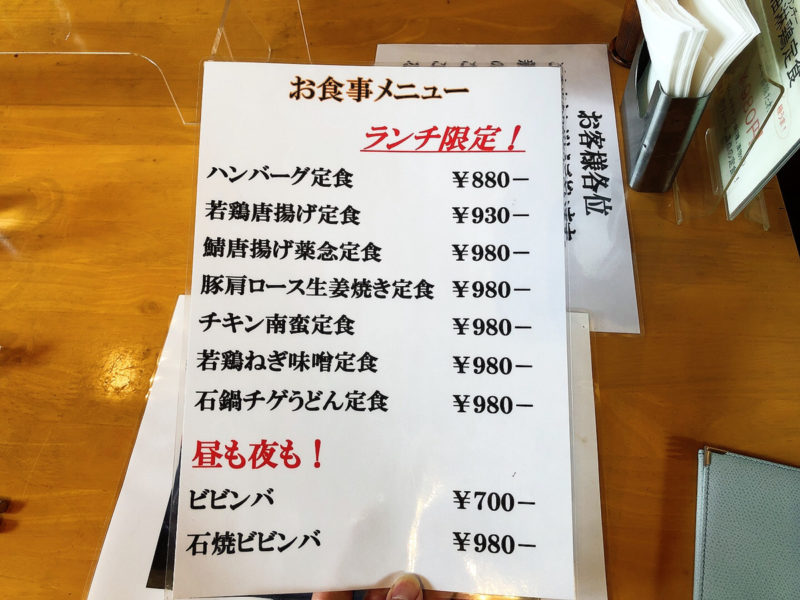 お食事メニュー
ランチ限定！
ハンバーグ定食 ￥880－
若鶏唐揚げ定食 ￥930－
鯖唐揚げ薬念定食 ￥980－
豚肩ロース生姜焼き定食 ￥980－
チキン南蛮定食 ￥980－
若鶏ねぎ味噌定食 ￥980－
石鍋チゲうどん定食 ￥980－
昼も夜も！
ビビンバ ￥700－
石焼ビビンバ ￥980－
お客様各位